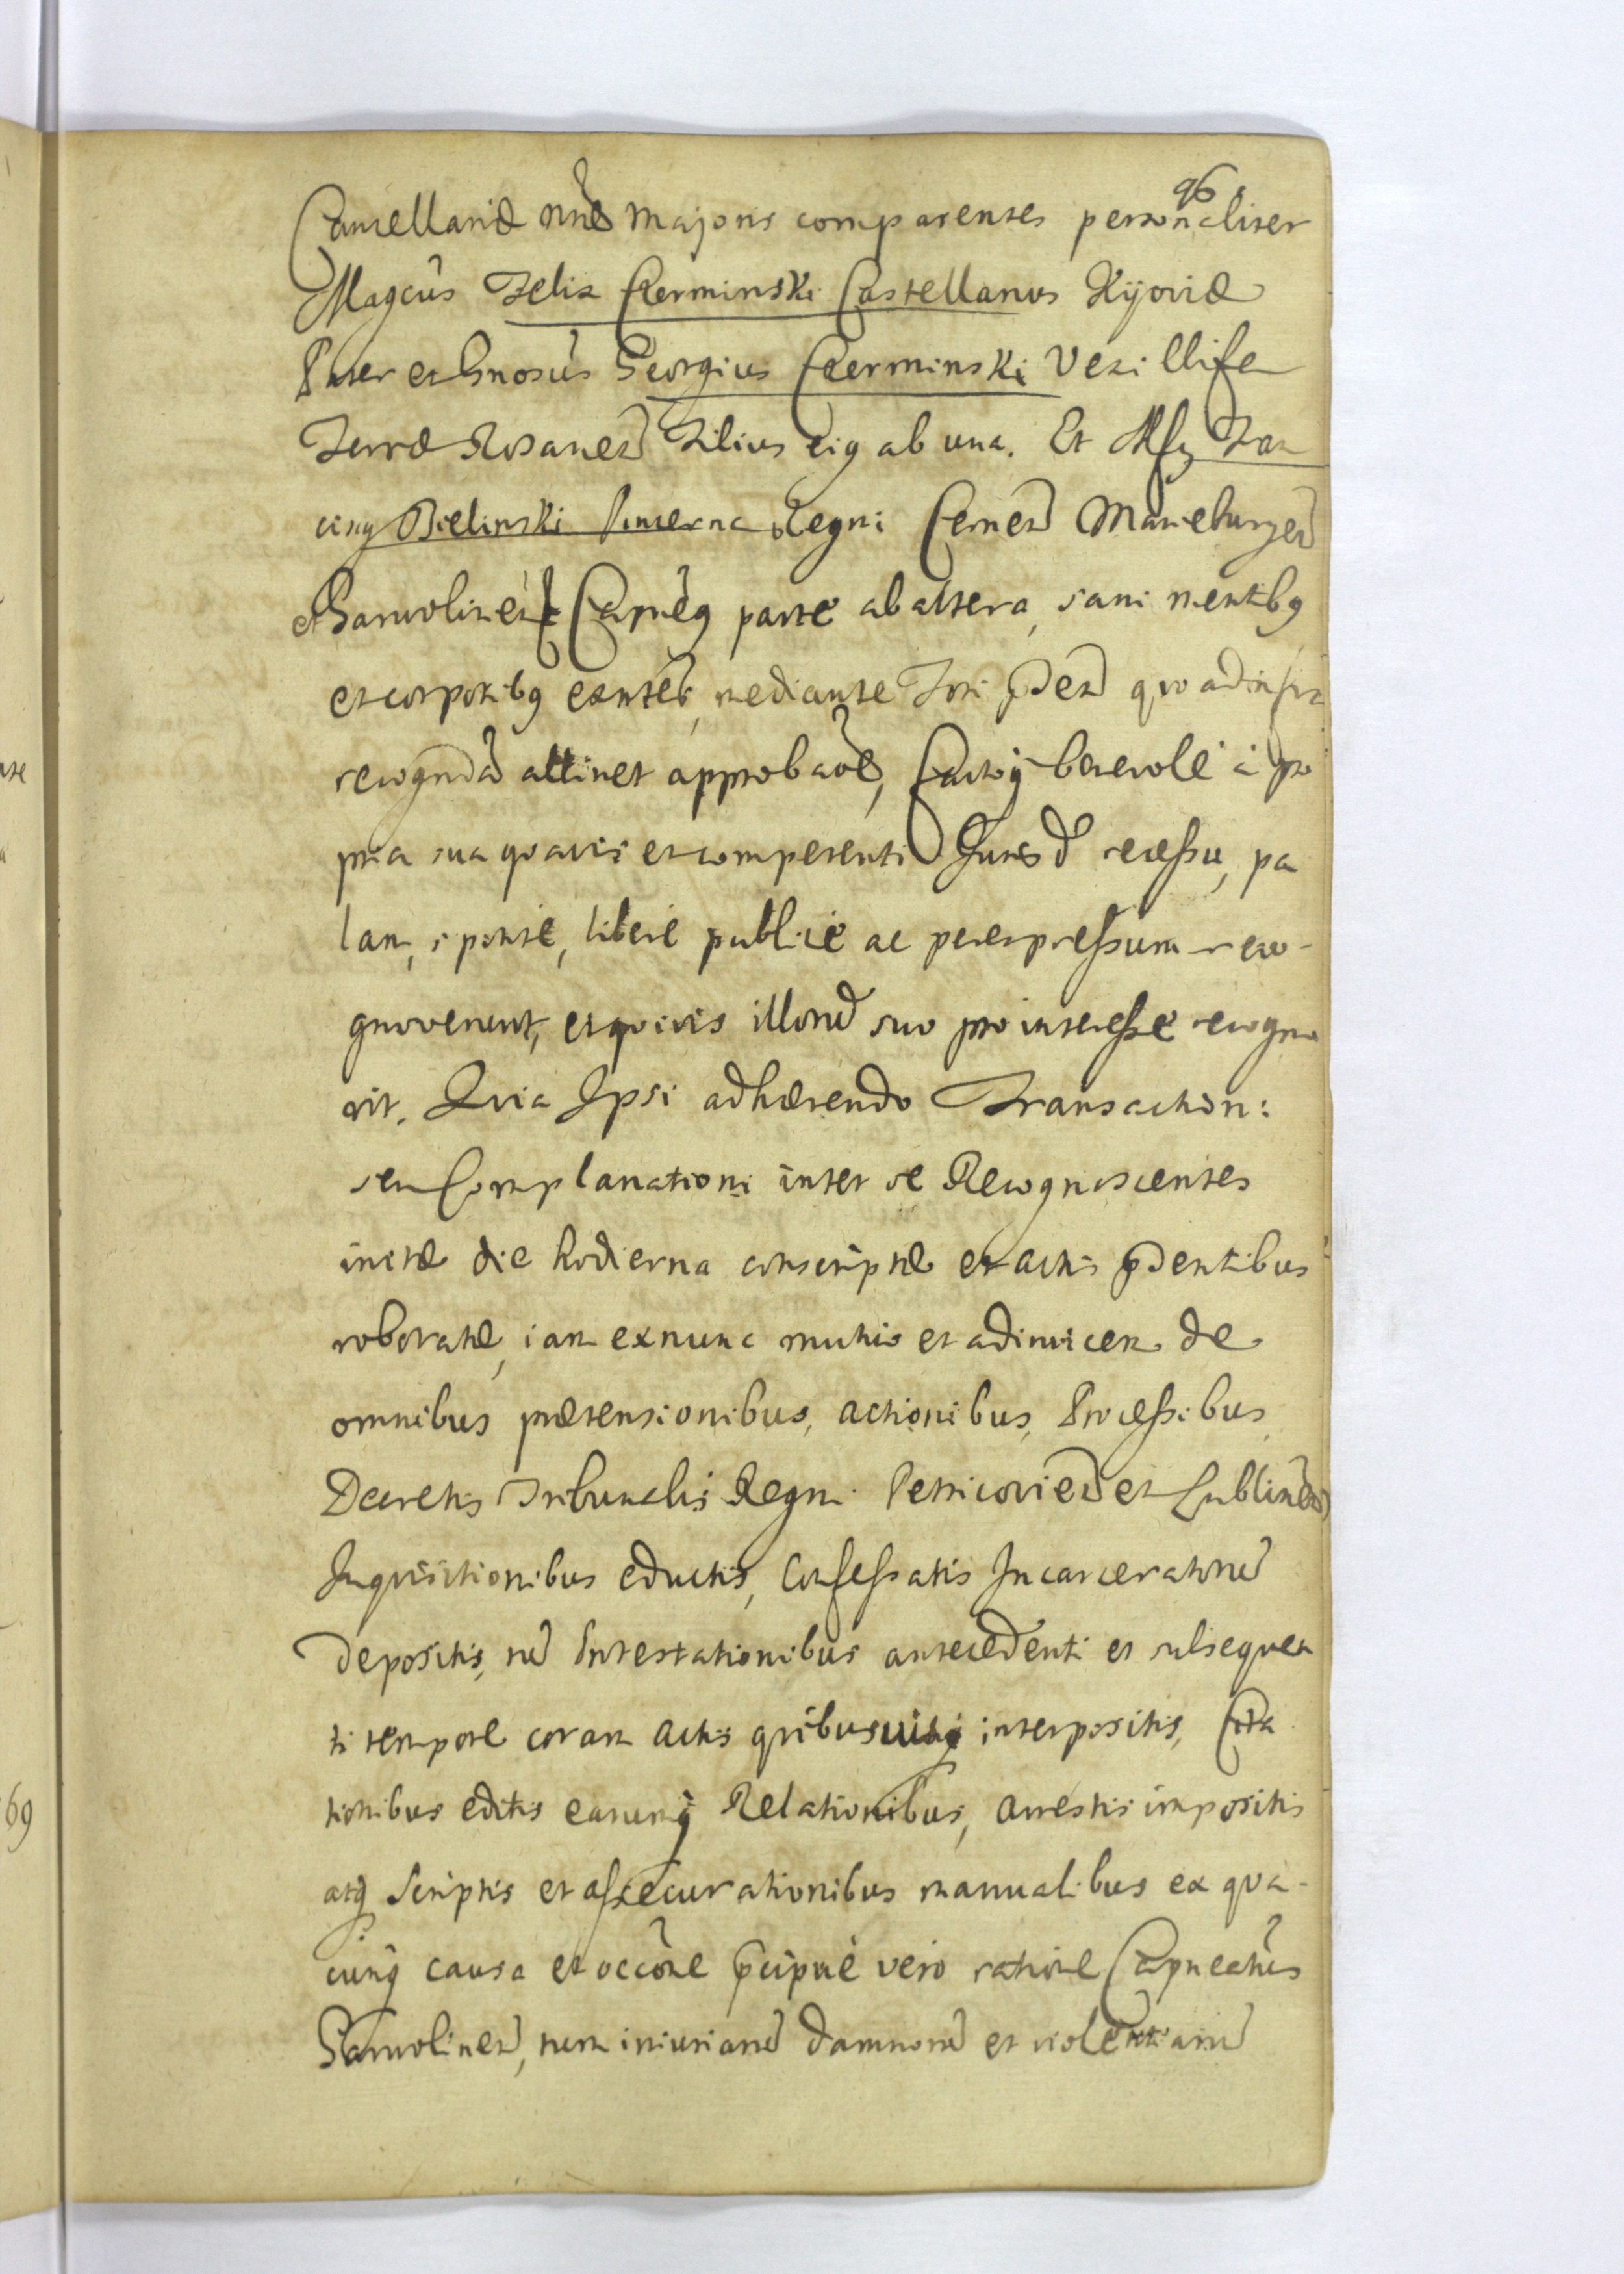 96
Cancellariæ nræ Majoris comparentes personaliter
Magcus Felix Czerminski Castellanus Kijoviæ
Pater et Gnosus Georgius Czerminski Vexillifer
Terræ Rosanen Filius eig ab una. Et Mfg Fran
cisg Bielinski Pincerna Regni Cernen Marieburgen
et Garvolinen Capneg parte ab altera, sani mentibg
et corporibg exntes, mediante Fori pden quo ad infra
recogndã attinet approbãoe, factoq benevole à pro
pria sua quavis et competenti Jurisd recessu, pa
lam, sponte, libere publicè ac per expressum reco-
gnoverunt, et quivis illorũ suo pro interesse recogno
vit. Quia Ipsi adhærendo Transactioni
seu Complanationi inter se Recognoscentes
initæ die hodierna conscriptæ et actis pdentibus
roboratæ, iam ex nunc mutuo et adinvicem de
omnibus prætensionibus, actionibus, Processibus
Decretis Tribunalis Regni Petricovien et Lublinen
Inquisitionibus eductis, Confessatis Incarceratorũ
depositis, Intestationibus antecedenti et subsequen
ti tempore coram actis quibusvisq interpositis, Cita
tionibus editis earumq Relationibus, arrestis impositis
atq Scriptis et assecurationibus manualibus ex qua-
cunq causa et occõne pcipuè vero ratione Capneatus
Garvolinen, tum iniuriarũ damnorũ et violentiarũ